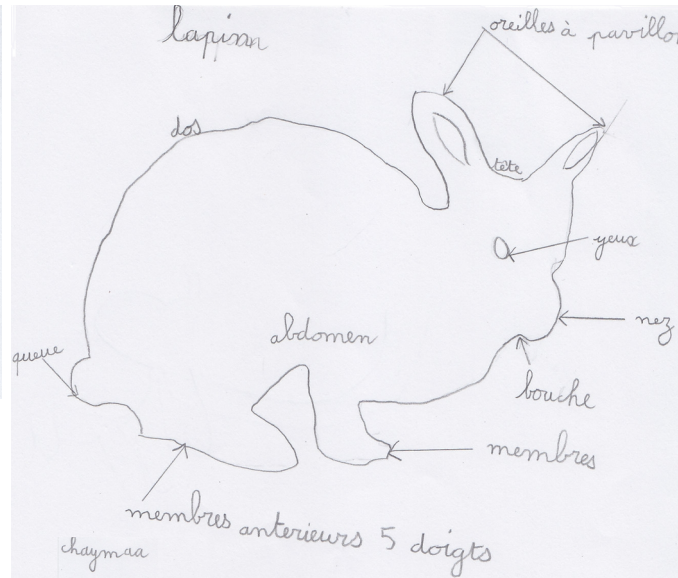 lapin
oreilles à pavillon
dos
tête
yeux
nez
abdomen
queue
bouche
membres
membres anterieurs 5 doigts
chaymaa